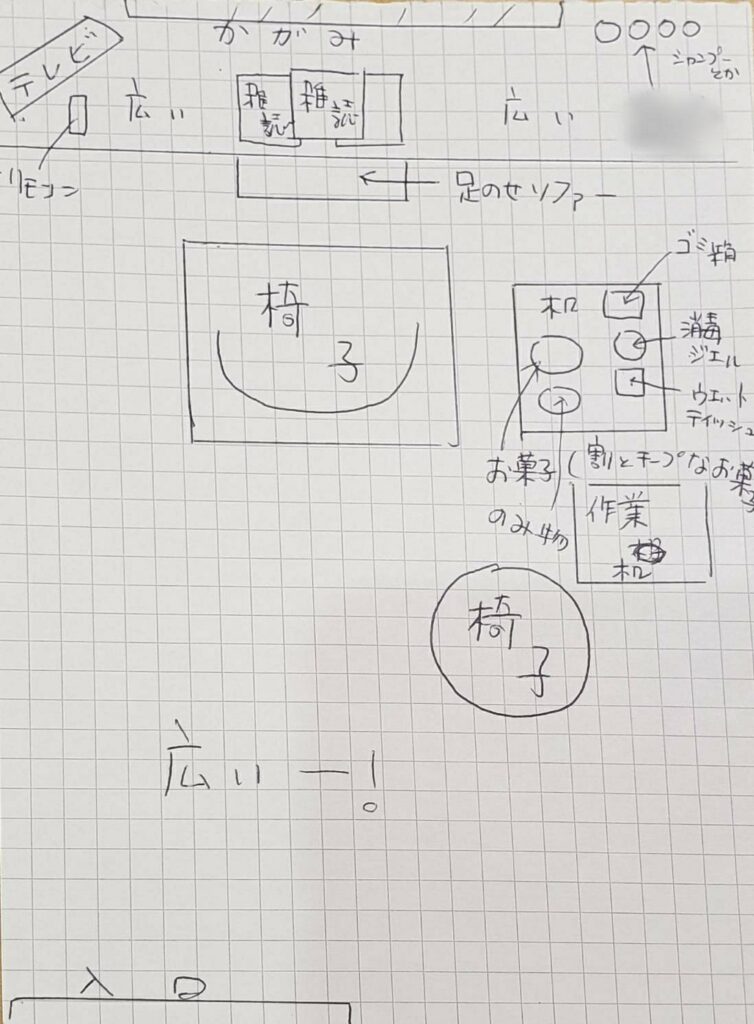 かがみ
テレビ
シャンプー
とか
広い
雑誌
雑誌
広い
リモコン
足のせソファー
ゴミ箱
椅子
机
消毒
ジェル
ウェット
ティッシュ
お菓子(割とチープなお菓子
のみ物
作業
机
椅子
広いー!
入口